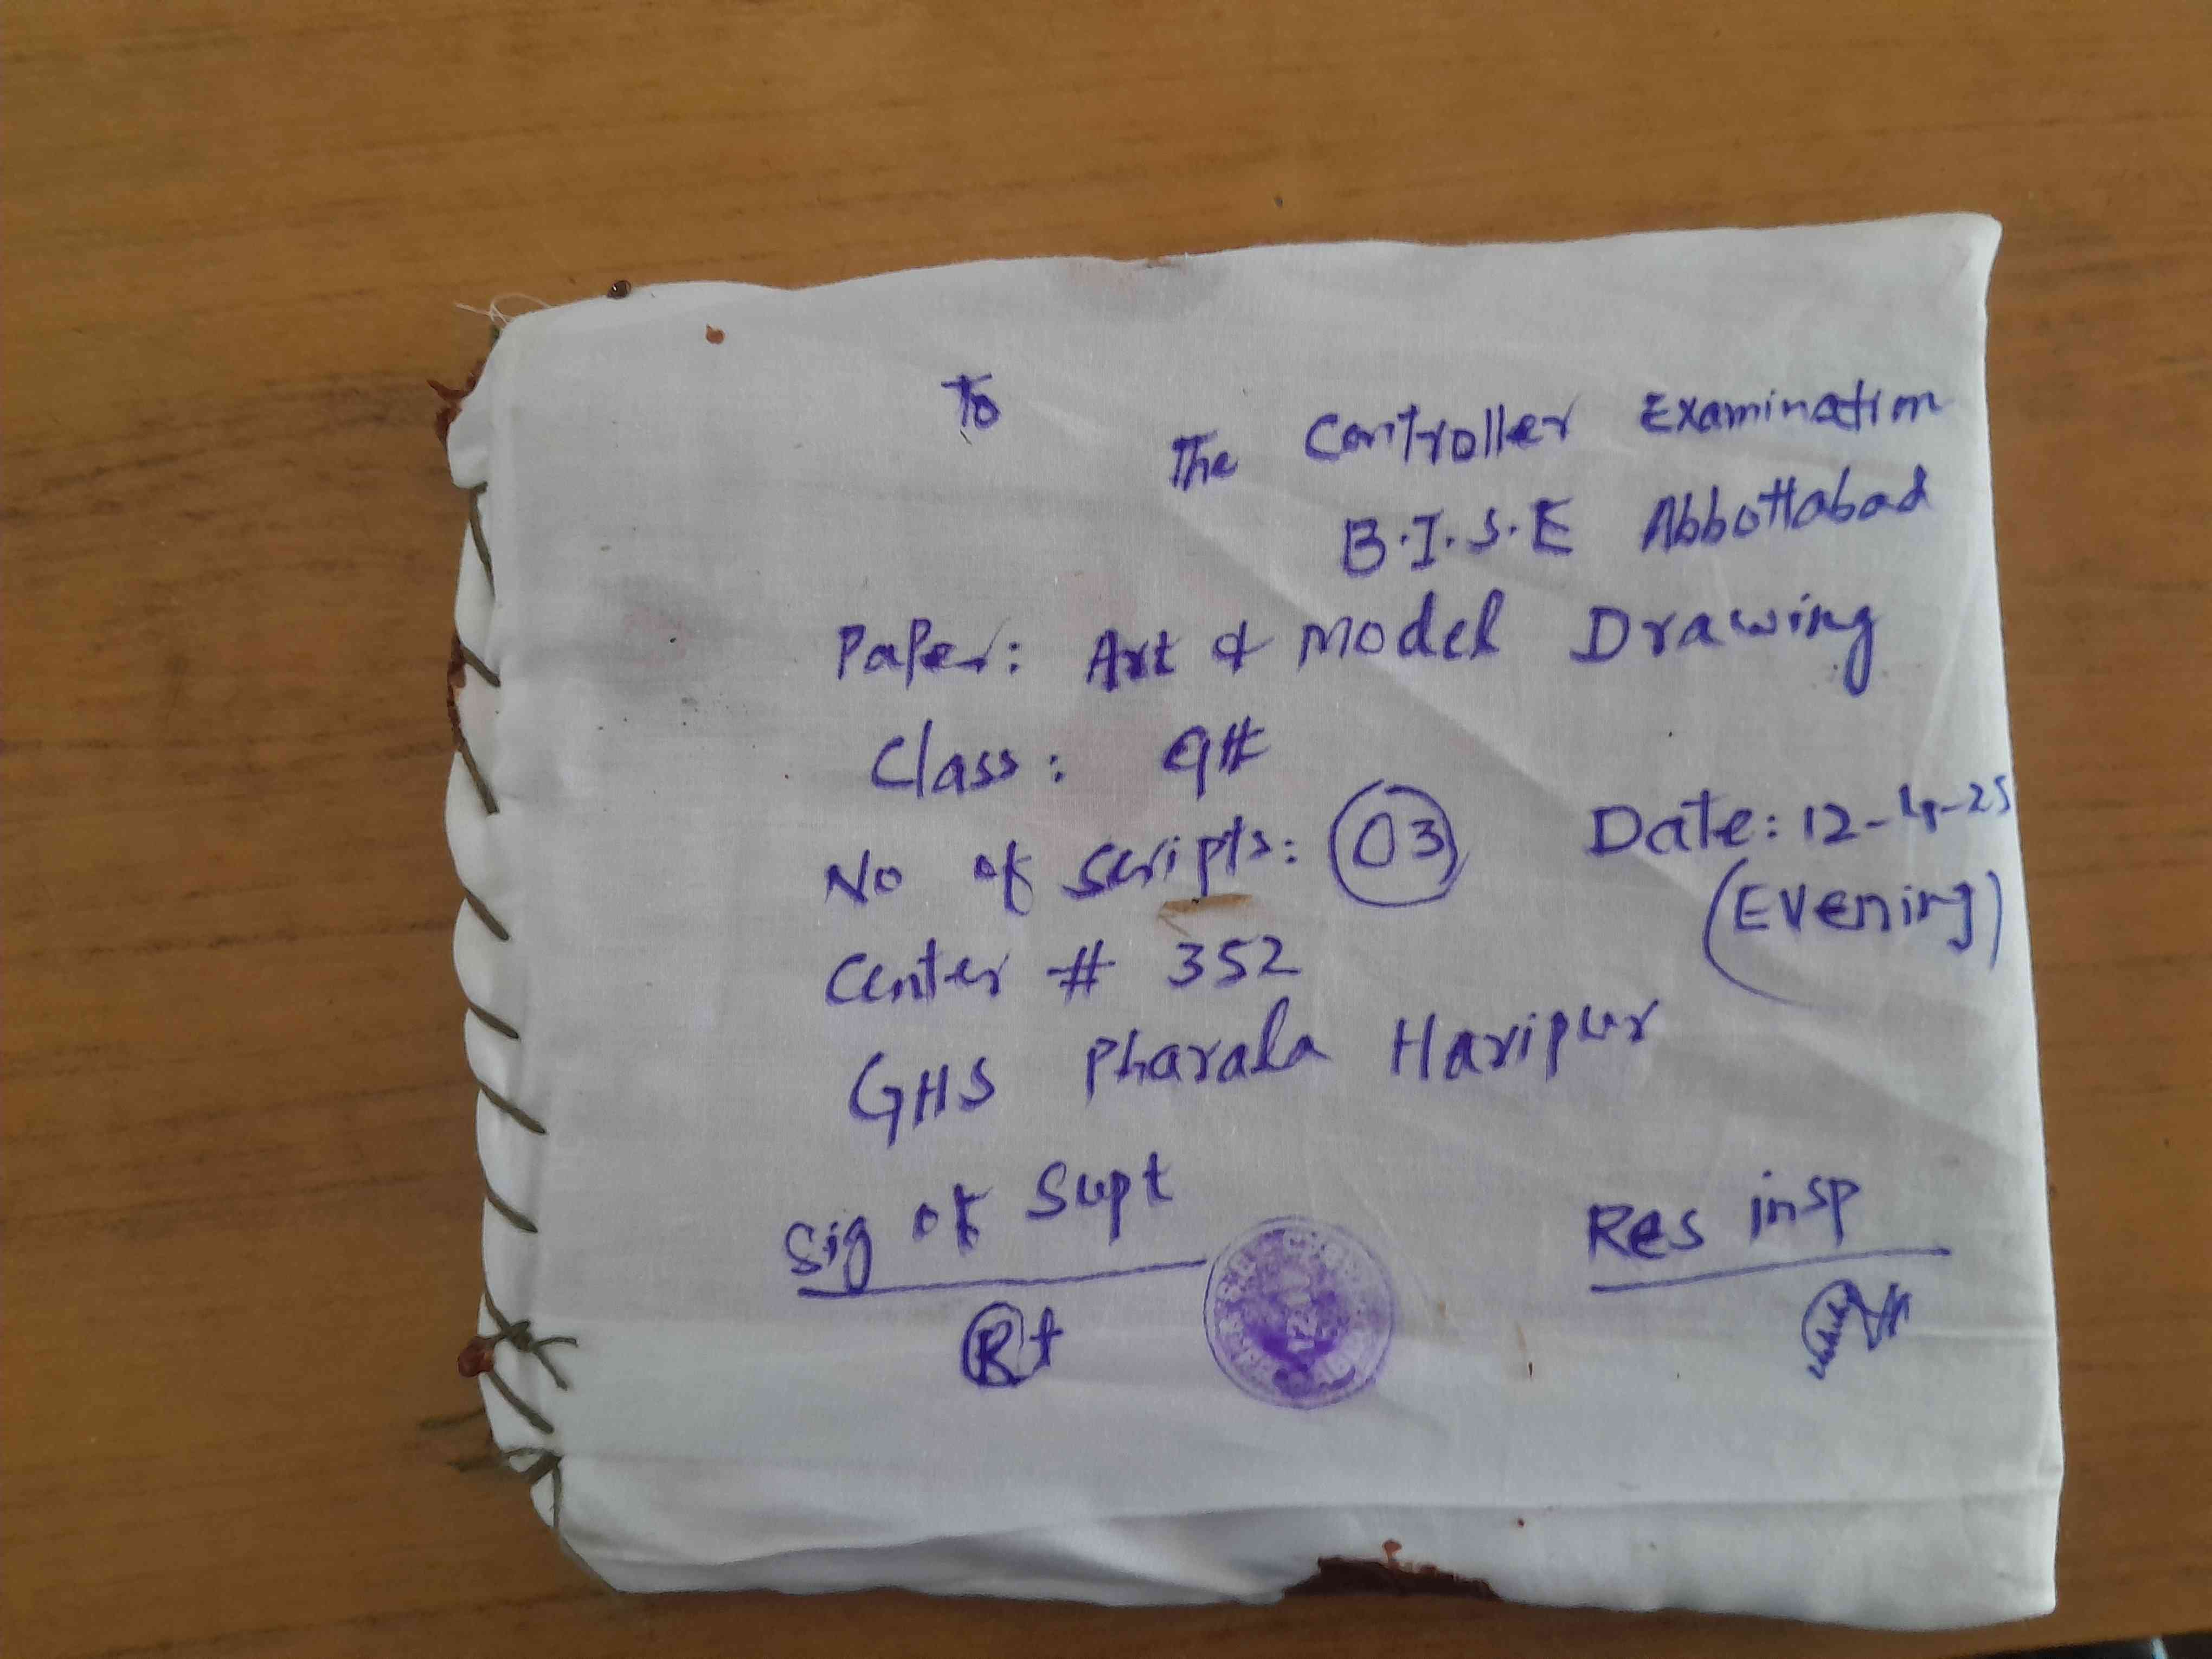 To
The Controller Examination
B.I.S.E Abbottabad
Paper: Art & Model Drawing
Class: 9th
No of scripts: 03
Date: 12-4-25
(Evening)
Center # 352
GHS Pharala Haripur
Sig of Supt
Res insp